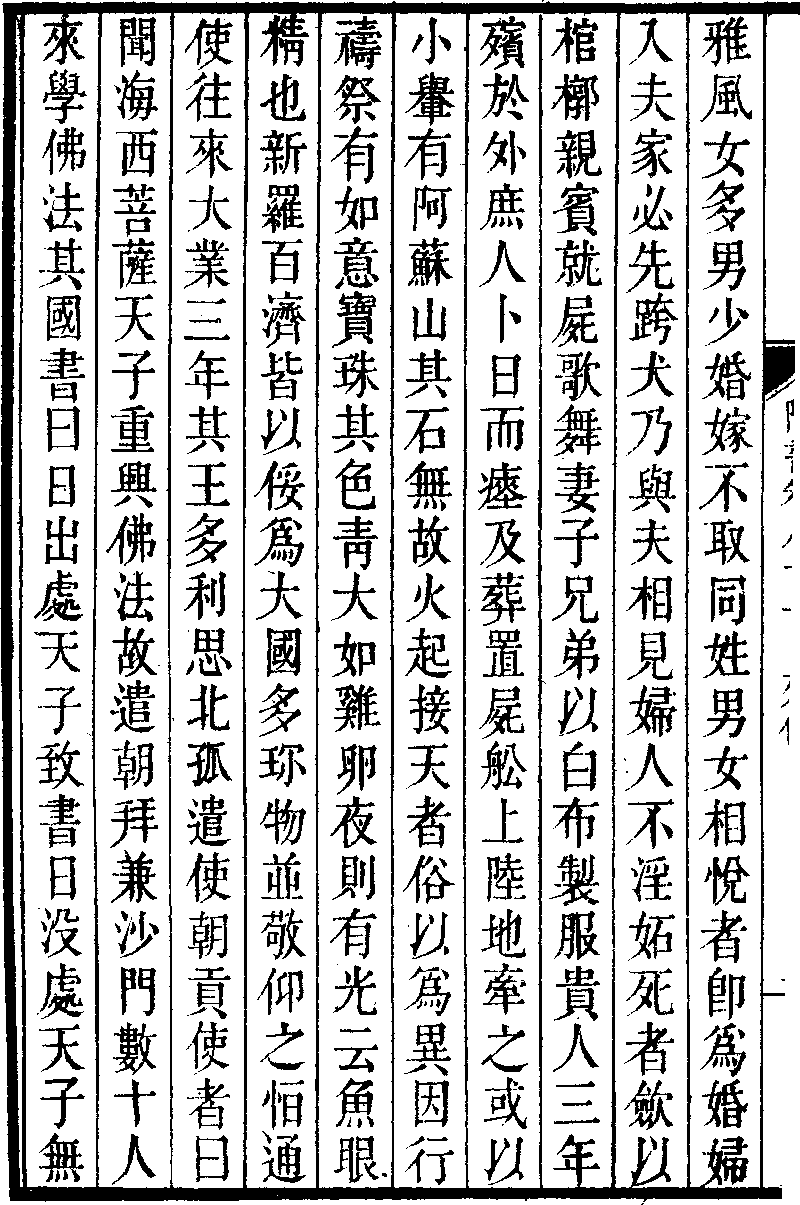 雅風女多男少婚嫁不取同姓男女相悅者卽爲婚婦
入夫家必先跨犬乃與夫相見婦人不淫妬死者斂以
棺槨親賓就屍歌舞妻子兄弟以白布製服貴人三年
殯於外庶人卜日而瘞及葬置屍舩上陸地牽之或以
小轝有阿蘇山其石無故火起接天者俗以爲異因行
禱祭有如意寶珠其色靑大如雞卵夜則有光云魚眼
精也新羅百濟皆以俀爲大國多珎物並敬仰之恒通
使往來大業三年其王多利思北孤遣使朝貢使者曰
聞海西菩薩天子重興佛法故遣朝拜兼沙門數十人
來學佛法其國書曰日出處天子致書日没處天子無